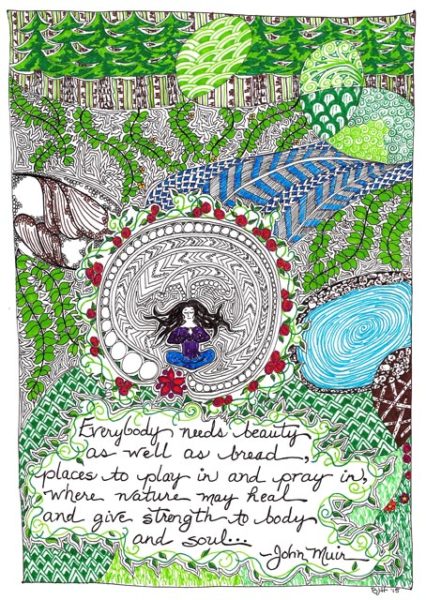 Everybody needs beauty
as well as bread,
places to play in and pray in,
where nature may heal
and give strength to body
and soul...
-John Muir